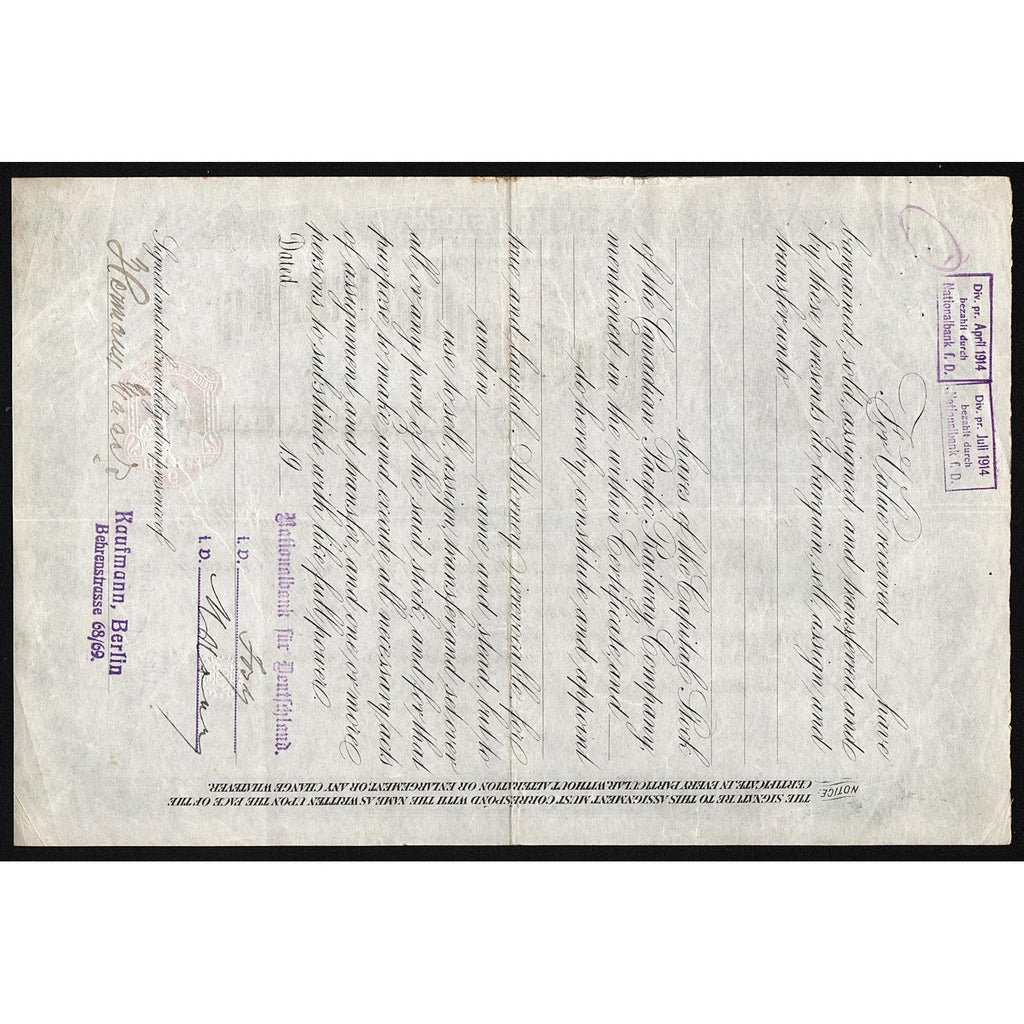 Div. pr. April 1914
bezahlt durch
Nationalbank f. D.
Div. pr. Juli 1914
bezahlt durch
Nationalbank f. D.
For Value received have
bargained, sold, assigned and transferred, and
by these presents do bargain, sell, assign and
transfer unto
shares of the Capital Stock
of the Canadian Pacific Railway Company,
mentioned in the within Certificate, and
do hereby constitute and appoint
true and lawful Attorney irrevocable for
and in name and stead, but to
use to sell, assign, transfer and set over
all or any part of the said stock, and for that
purpose to make and execute all necessary acts
of assignment and transfer, and one or more
persons to substitute with like full power.
Dated 19
Nationalbank für Deutschland.
i. V.
i. V.
Signed and acknowledged in presence of
Kaufmann, Berlin
Behrenstrasse 68/69.
NOTICE:
THE SIGNATURE TO THIS ASSIGNMENT MUST CORRESPOND WITH THE NAME AS WRITTEN UPON THE FACE OF THE
CERTIFICATE, IN EVERY PARTICULAR, WITHOUT ALTERATION OR ENLARGEMENT, OR ANY CHANGE WHATEVER.